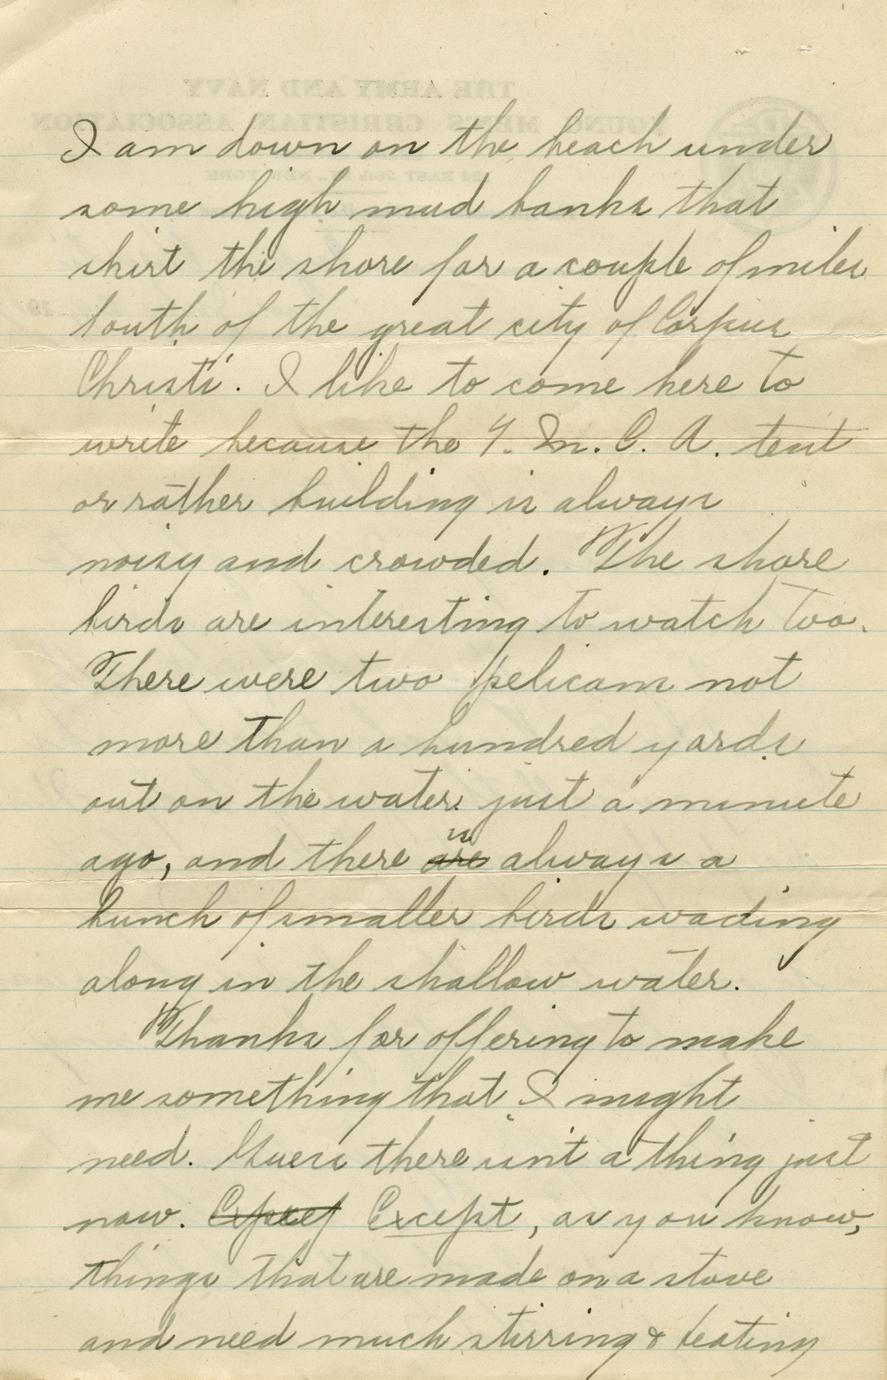 THE ARMY AND NAVY
YOUNG MEN'S CHRISTIAN ASSOCIATION
I am down on the beach under
some high mud banks that
skirt the shore for a couple of miles
South of the great city of Corpus
Christi. I like to come here to
write because the Y. M. C. A. tent
or rather building is always
noisy and crowded. The shore
birds are interesting to watch too.
There were two pelicans not
more than a hundred yards
out on the water just a minute
ago, and there are is always a
bunch of smaller birds wading
along in the shallow water.
Thanks for offering to make
me something that I might
need. Guess there isn't a thing just
now. Except, as you know,
things that are made on a stove
and need much stirring & beating